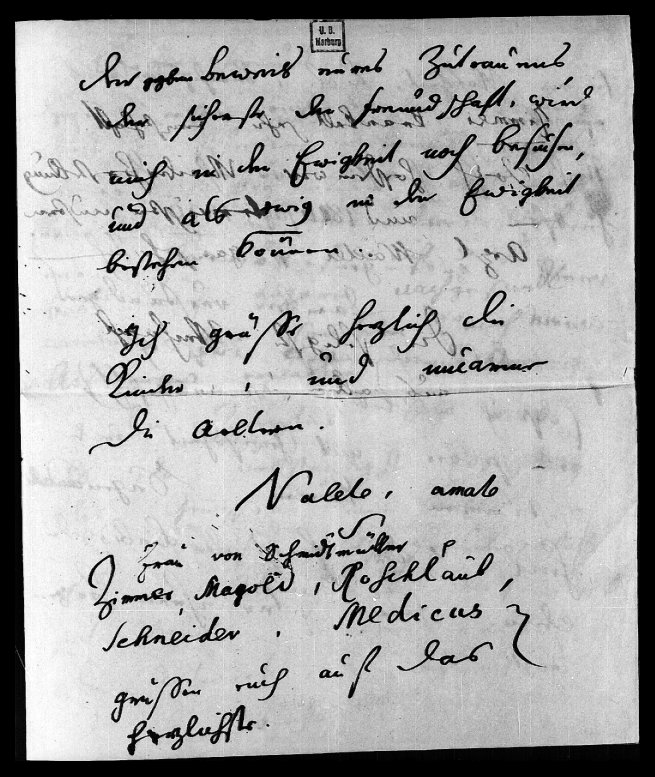 U. B. Marburg
Beweis eures Zutrauens,
der sicherste der Freundschaft, wird
mich in der Ewigkeit noch
und als ewig in der Ewigkeit
bestehen können.
Ich grüsse herzlich die
Kinder, und umarme
die Aeltern.
Valete, amate
Frau von Schmidtmüller
Zimmer, Magold, Röschlaub,
Schneider, Medicus
grüssen euch auf das
herzlichste.